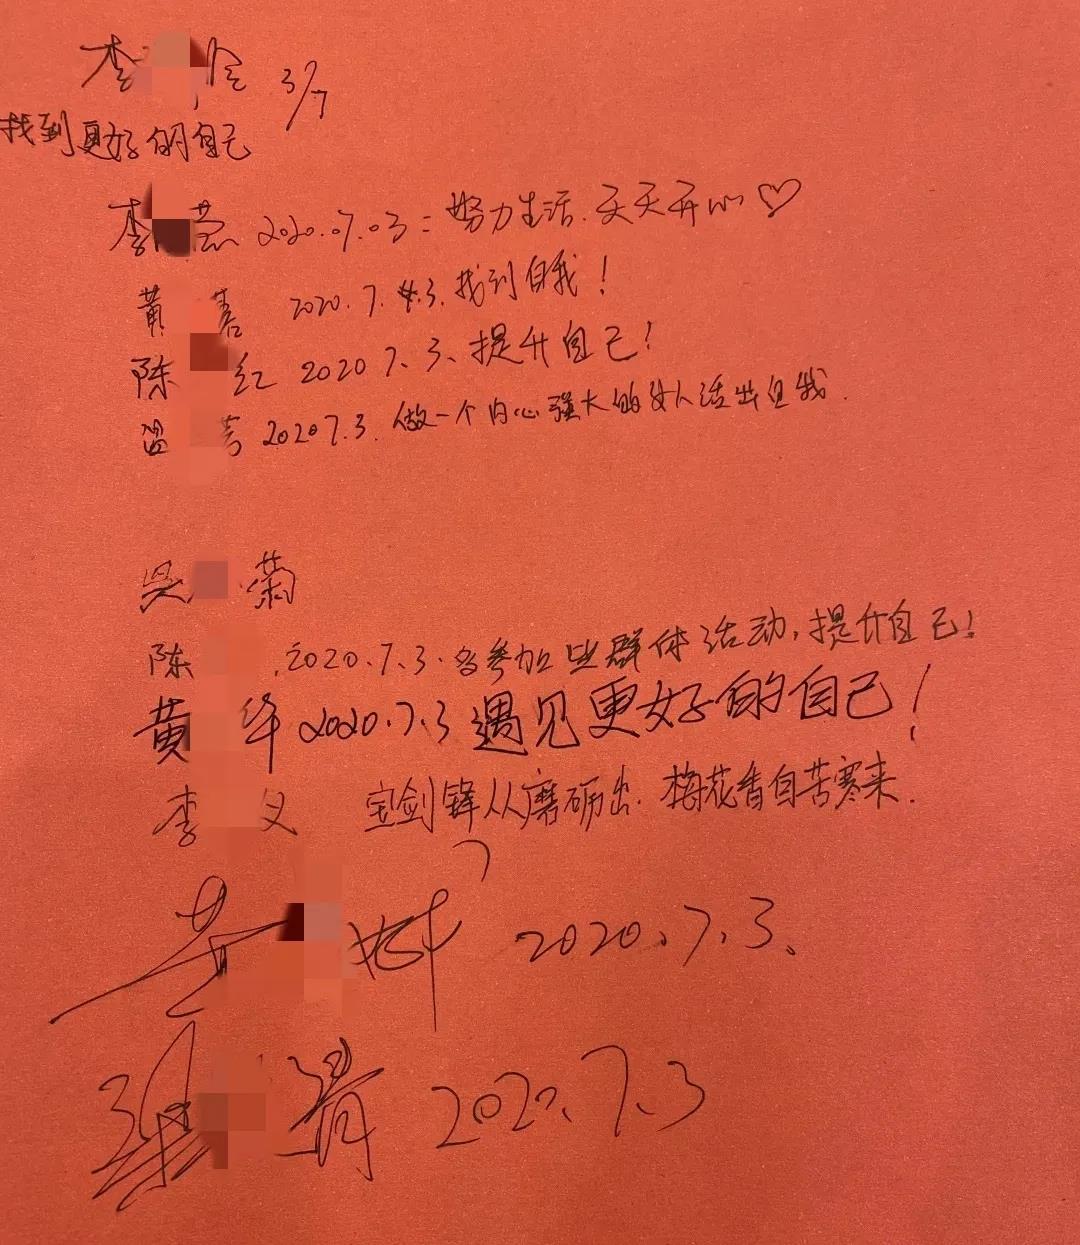 李 3/7
找到更好的自己
李 2020.07.03：努力生活.天天开心♡
黄 2020.7.3.找到自我！
陈 红 2020 7.3、提升自己！
2020 7.3.做一个内心强大的女人活出自我.
吴 菊
陈 .2020.7.3.多参加些群体活动，提升自己！
黄 华 2020.7.3 遇见更好的自己！
李 义 宝剑锋从磨砺出.梅花香自苦寒来.
2020.7.3.
梁 清 2020.7.3